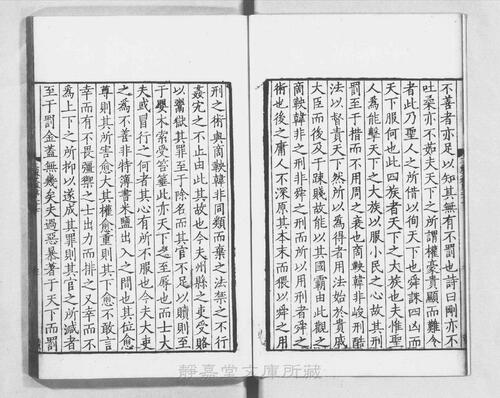 不善者亦足以知其無有不罰也詩曰剛亦不
吐柔亦不茹夫天下之所謂權豪貴顯而難令
者此乃聖人之所借以徇天下也舜誅四凶而
天下服何也此四族者天下之大族也夫惟聖
人為能擊天下之大族以服小民之心故其刑
罰至于措而不用周之衰也商鞅韓非峻刑酷
法以督責天下然所以為得者用法始於貴戚
大臣而後及于疎賤故能以其國霸由此觀之
商鞅韓非之刑非舜之刑而所以用刑者舜之
術也後之庸人不深原其本末而猥以舜之用
刑之術與商鞅韓非同類而棄之法禁之不行
姦宄之不止由此其故也今夫州縣之吏受賂
以鬻獄其罪至于除名而其官不足以贖則至
于嬰木索受笞箠此亦天下之至辱也而士大
夫或冒行之何者其心有所不服也今夫大吏
之為不善非特簿書米鹽出入之間也其位愈
尊則其所害愈大其權愈重則其下愈不敢言
幸而有不畏彊禦之士出力而排之又幸而不
為上下之所抑以遂成其罪則其官之所減者
至于罰金蓋無幾矣夫過惡暴著于天下而罰
靜嘉堂文庫所藏